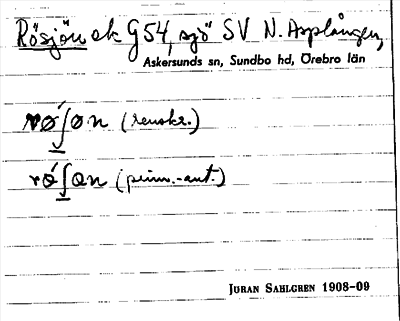 Rösjön ek G54, sjö SV N. Asplången,
Askersunds sn, Sundbo hd, Örebro län
rǿʃøn (renskr.)
rǿʃøn (prim.-ant.)
JÖRAN SAHLGREN 1908-09